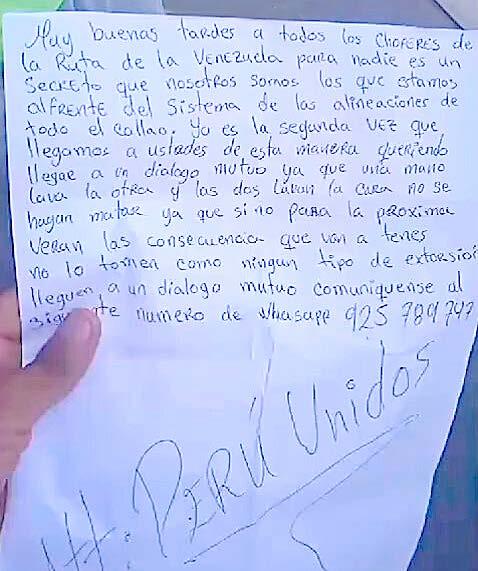 Muy buenas tardes a todos los choferes de
la Ruta de la Venezuela para nadie es un
secreto que nosotros somos los que estamos
alfrente del Sistema de las alineaciones de
todo el collao. Ya es la segunda vez que
llegamos a ustedes de esta manera queriendo
llegar a un dialogo mutuo ya que una mano
lava la otra y las dos lavan la cara no se
hagan matar ya que si no para la proxima
veran las consecuencia que van a tener
no lo tomen como ningun tipo de extorsion
lleguen a un dialogo mutuo comuniquense al
numero de Whasapp 925 789 747
Att: PERÚ Unidos